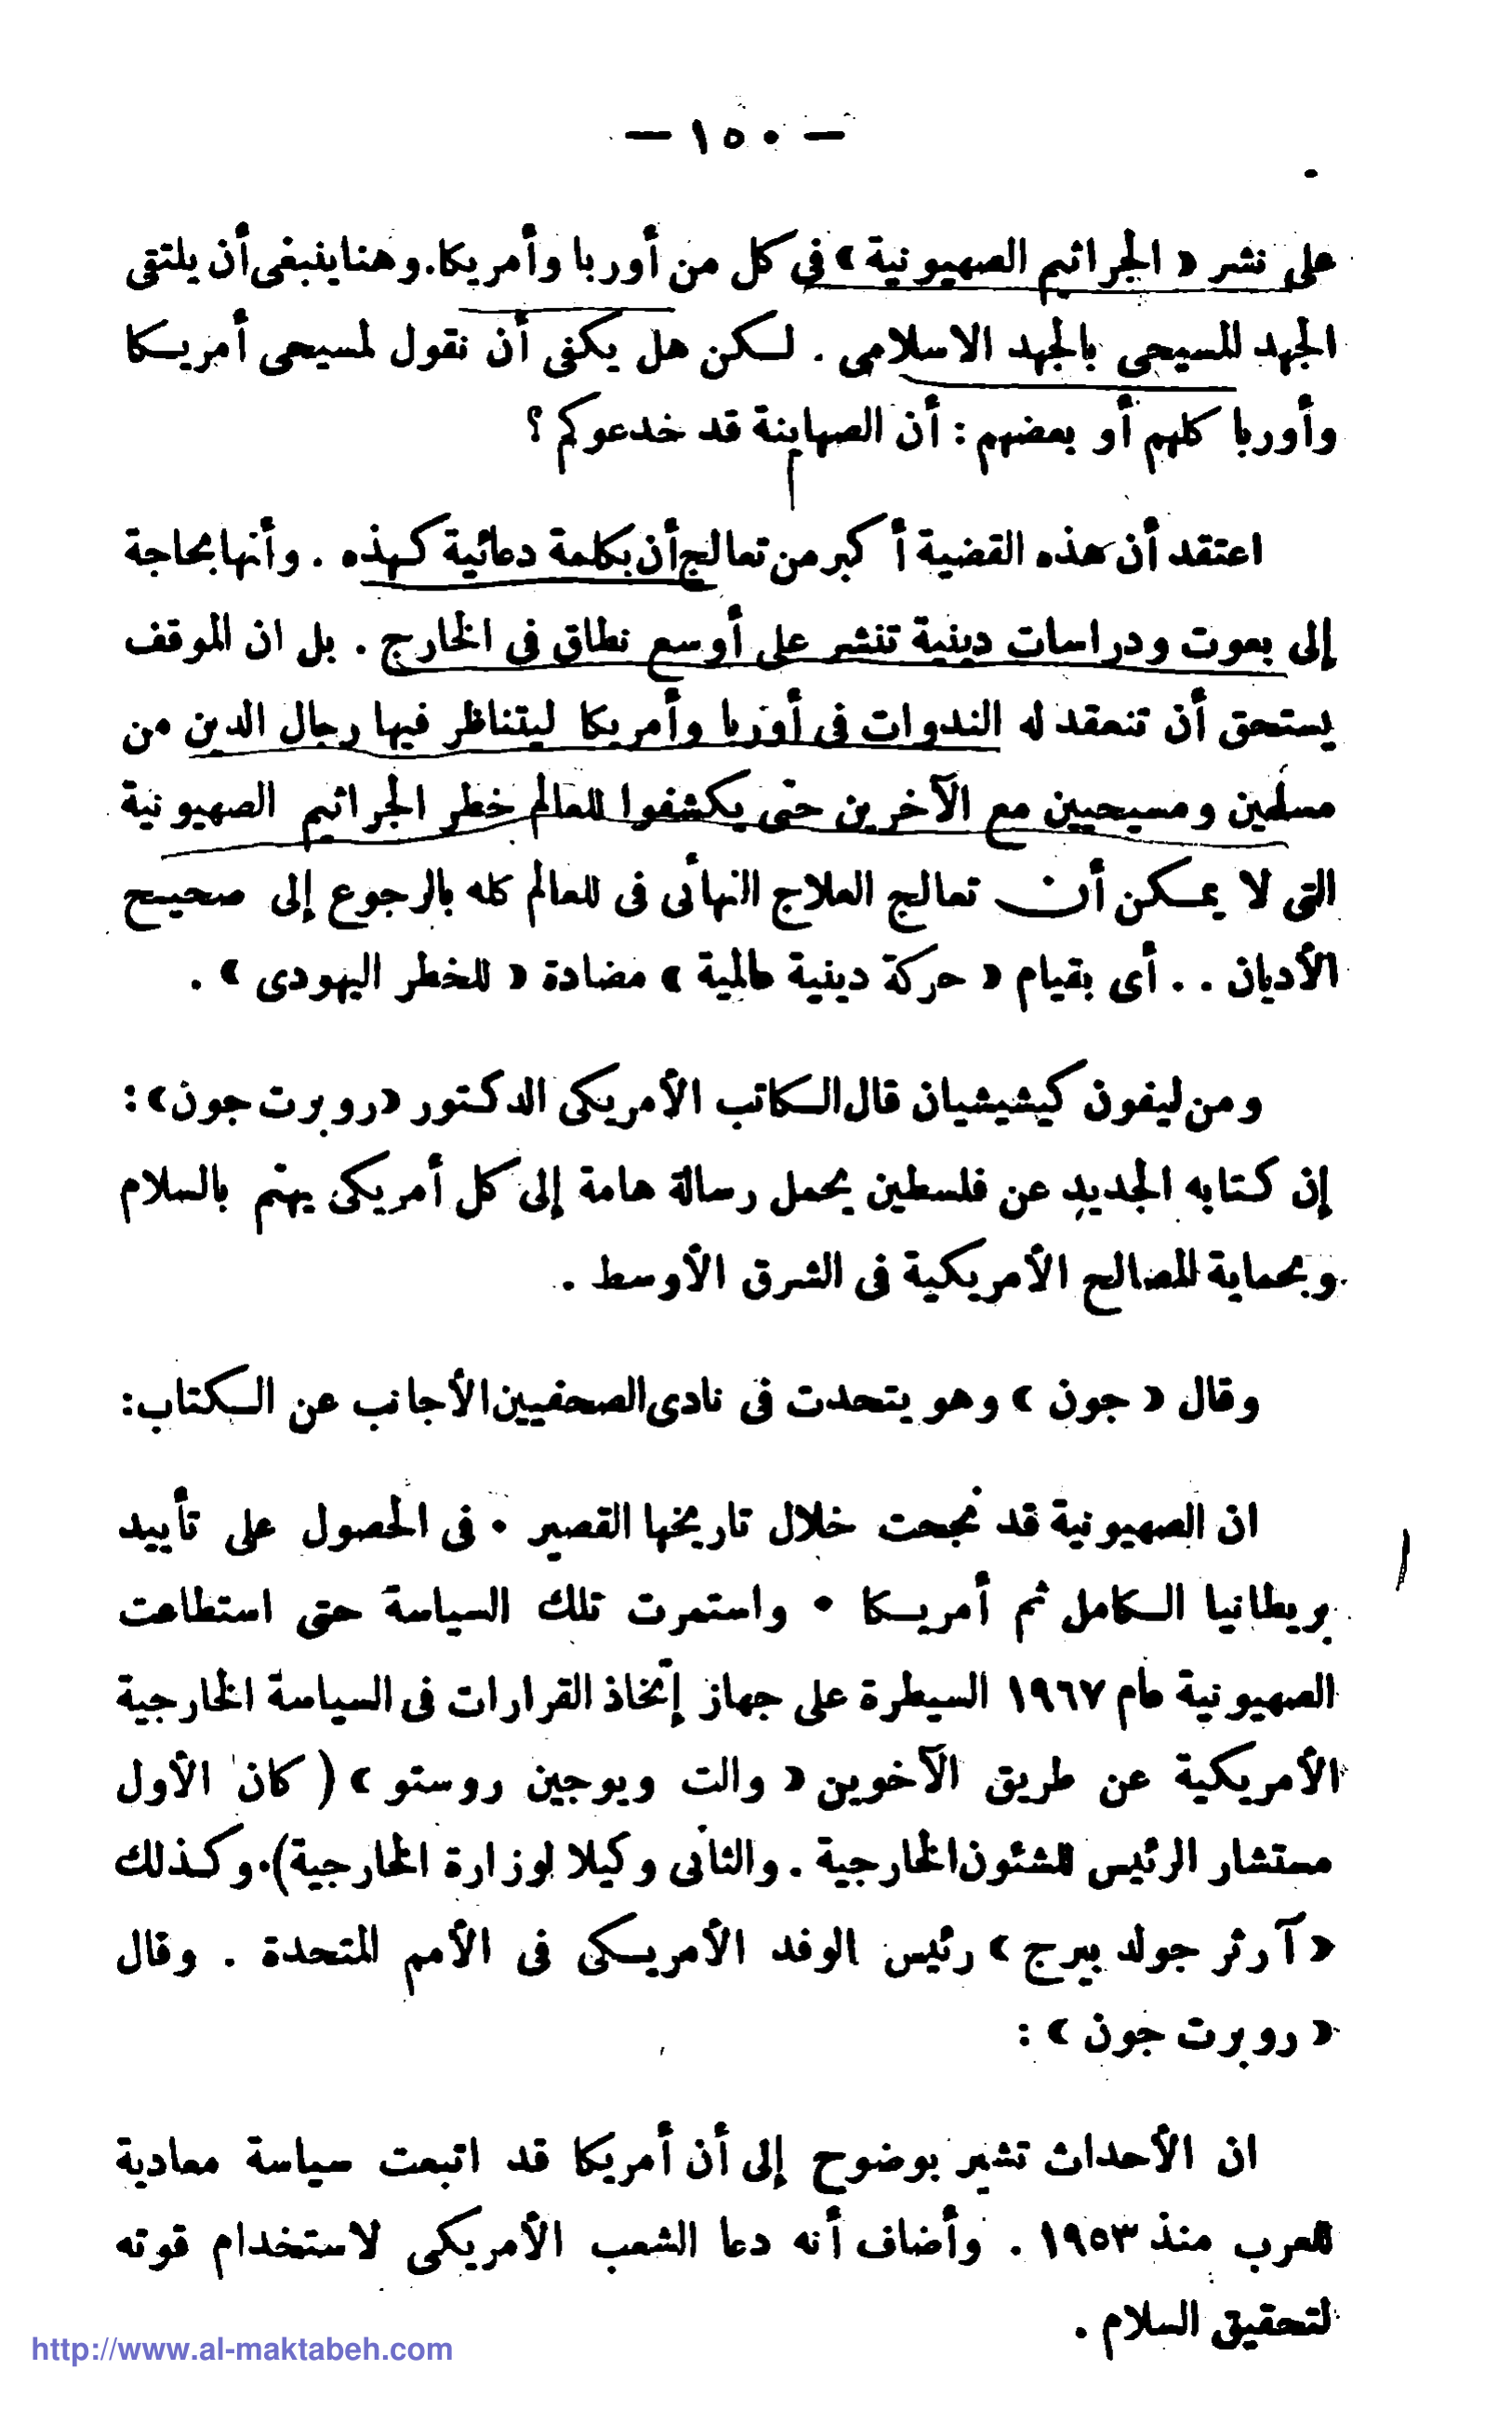 — ١٥٠ —
على نشر « الجرائم الصهيونية » فى كل من أوربا وأمريكا. وهنا ينبغى أن يلتقى
الجهد المسيحى بالجهد الاسلامى . لكن هل يكفى أن نقول لمسيحى أمريكا
وأوربا كلهم أو بعضهم : أن الصهاينة قد خدعوكم ؟
اعتقد أن هذه القضية أكبر من تعالج أن بكلمة دعائية كهذه . وأنها بحاجة
إلى بعوث ودراسات دينية تنشر على أوسع نطاق فى الخارج . بل ان الموقف
يستحق أن تنعقد له الندوات فى أوربا وأمريكا ليتناظر فيها رجال الدين من
مسلمين ومسيحيين مع الآخرين حتى يكشفوا للعالم خطر الجرائم الصهيونية
التى لا يمكن أن تعالج العلاج النهائى فى العالم كله بالرجوع إلى صحيح
الأديان . . أى بقيام « حركة دينية عالمية » مضادة « للخطر اليهودى » .
ومن ليفون كيشيشيان قال الكاتب الأمريكى الدكتور «روبرت جون» :
إن كتابه الجديد عن فلسطين يحمل رسالة هامة إلى كل أمريكى يهتم بالسلام
وبحماية المصالح الأمريكية فى الشرق الأوسط .
وقال « جون » وهو يتحدث فى نادى الصحفيين الأجانب عن الكتاب :
ان الصهيونية قد نجحت خلال تاريخها القصير . فى الحصول على تأييد
بريطانيا الكامل ثم أمريكا . واستمرت تلك السياسة حتى استطاعت
الصهيونية عام ١٩٦٧ السيطرة على جهاز إتخاذ القرارات فى السياسة الخارجية
الأمريكية عن طريق الآخوين « والت ويوجين روستو » ( كان الأول
مستشار الرئيس للشئون الخارجية . والثانى وكيلا لوزارة الخارجية). وكذلك
« آرثر جولد بيرج » رئيس الوفد الأمريكى فى الأمم المتحدة . وقال
« روبرت جون » :
ان الأحداث تشير بوضوح إلى أن أمريكا قد اتبعت سياسة معادية
للعرب منذ ١٩٥٣ . وأضاف أنه دعا الشعب الأمريكى لاستخدام قوته
لتحقيق السلام .
http://www.al-maktabeh.com